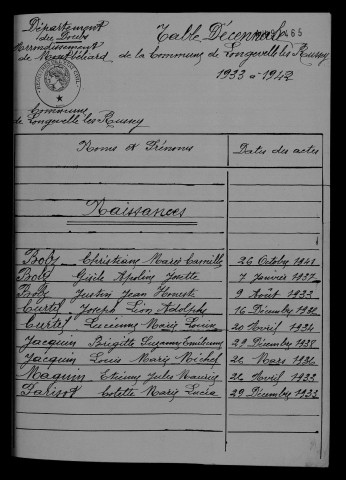 Département
du Doubs
Arrondissement
de Montbéliard
Commune
de Longevelle les Russey
Table Décennale
de la Commune de Longevelle les Russey
1933 à 1942
Noms et Prénoms Dates des actes
Naissances
Boly Christiane Marie Camille 26 Octobre 1941
Boly Gisèle Apoline Josette 7 Janvier 1937
Boly Justin Jean Honoré 9 Août 1933
Curtil Joseph Léon Adolphe 16 Décembre
Curtil Lucienne Marie Louise 20 Avril 1934
Jacquin Brigitte Suzanne Emilienne 29 Décembre 1938
Jacquin Louis Marie Michel 26 Mars 1936
Maquin Etienne Jules Maurice 26 Avril 1933
Parisot Colette Marie Lucia 29 Décembre 1933